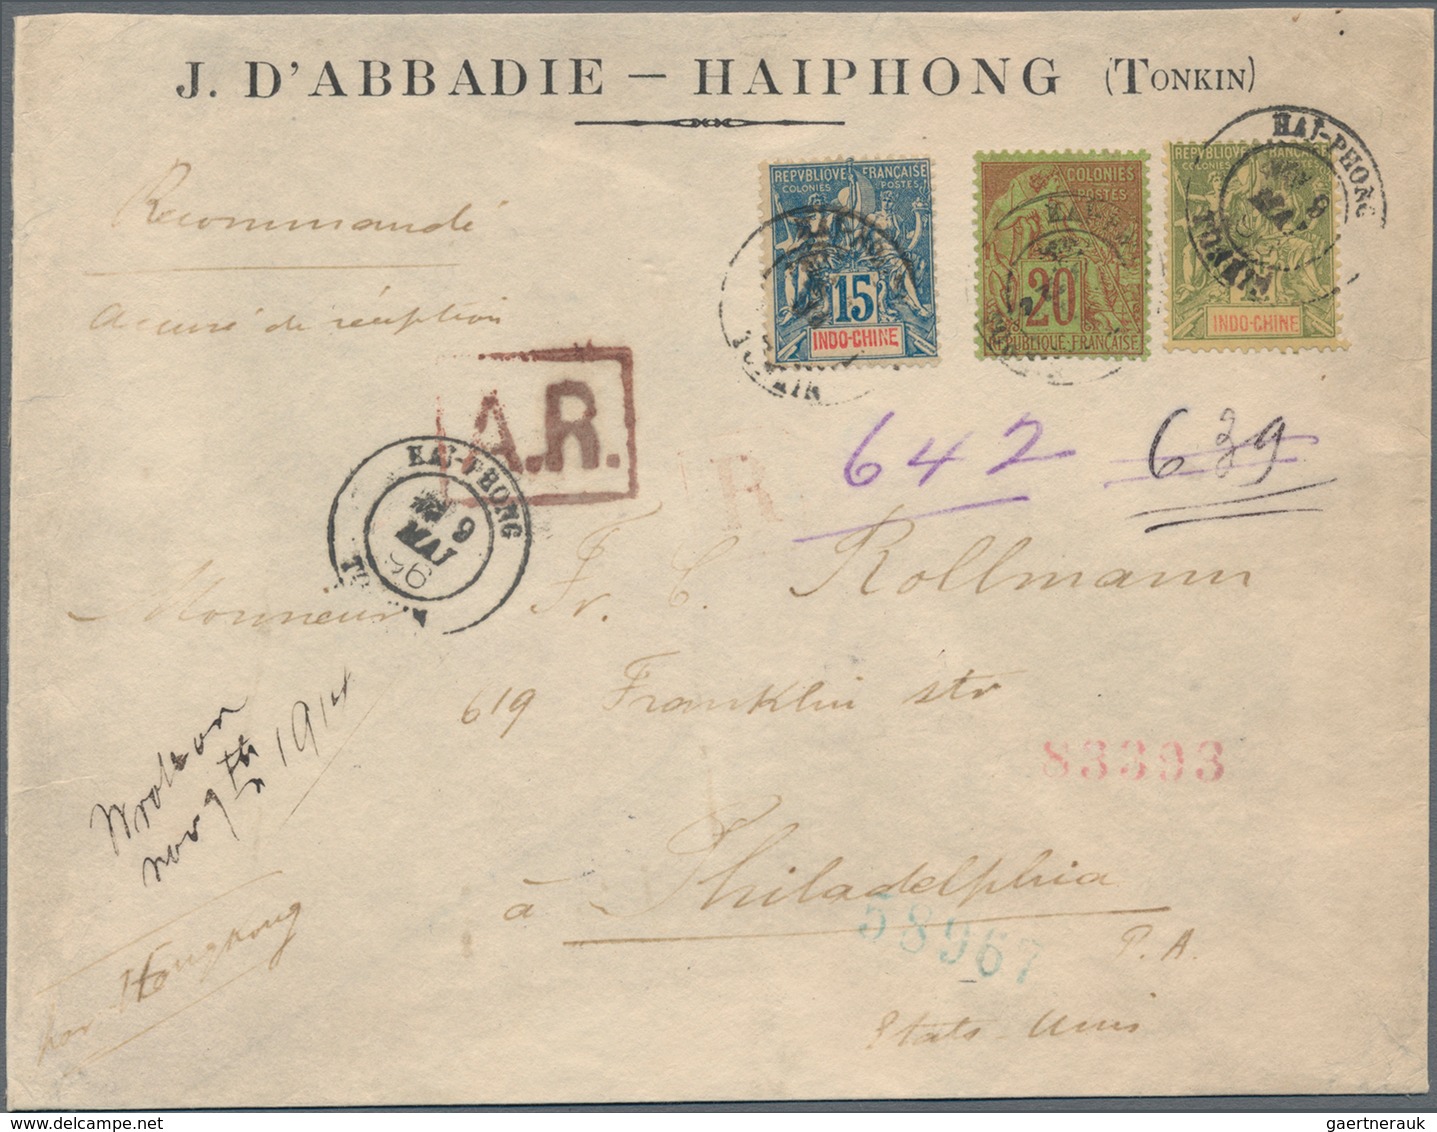 J. D'ABBADIE — HAIPHONG (TONKIN)
Recommandé
accusé de réception
REPVBLIQVE FRANÇAISE
COLONIES POSTES
15
INDO-CHINE
COLONIES
POSTES
20
REPUBLIQUE FRANÇAISE
REPVBLIQVE FRANÇAISE
COLONIES POSTES
INDO-CHINE
HAI-PHONG
9
MAI
TONKIN
A.R.
R
642 639
HAI-PHONG
9
MAI
96
Monsieur Fr. C. Rollmann
619 Franklin str
83393
nov 9th 1914
à Philadelphia
58967
P.A.
Etats-Unis
par Hongkong
gaertnerauk @ delcampe.net